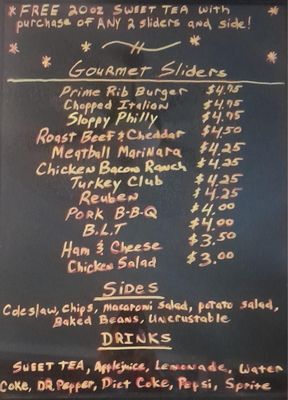 * FREE 20oz SWEET TEA with
purchase of ANY 2 sliders and side!
Gourmet Sliders
Prime Rib Burger $4.75
Chopped Italian $4.75
Sloppy Philly $4.75
Roast Beef & Cheddar $4.50
Meatball Marinara $4.25
Chicken Bacon Ranch $4.25
Turkey Club $4.25
Reuben $4.25
Pork B-B-Q $4.00
B.L.T $4.00
Ham & Cheese $3.50
Chicken Salad $3.00
Sides
Coleslaw, Chips, macaroni salad, potato salad,
Baked Beans, Uncrustable
DRINKS
SWEET TEA, Applejuice, Lemonade, Water
Coke, DR. Pepper, Diet Coke, Pepsi, Sprite